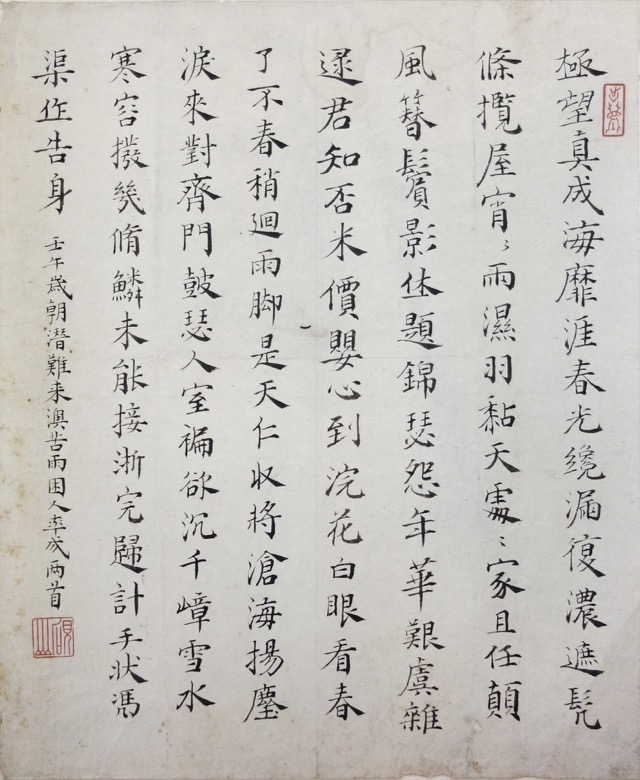 極望真成海靡涯春光纔漏復濃遮髡
條攬屋宵〻雨濕羽黏天處〻家且任顛
風簪鬢影休題錦瑟怨年華艱虞雜
遝君知否米價嬰心到浣花白眼看春
了不春稍迴雨脚是天仁收將滄海揚塵
淚來對齊門鼓瑟人室褊欲沉千嶂雪水
寒容撥幾脩鱗未能接淅完歸計手狀馮
渠作告身
壬午歲朝潛難来澳苦雨困人率成兩首